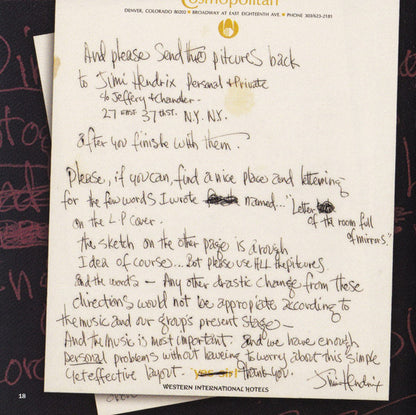 Cosmopolitan
DENVER, COLORADO 80202 • BROADWAY AT EAST EIGHTEENTH AVE • PHONE 303/623-2181
And please send the pitcures back
to Jimi Hendrix Personal & Private
c/o Jeffery & Chandler -
27 EAST 37th ST. N.Y. N.Y.
after you finishe with them.
Please, if you can, find a nice place and lettering
for the few words I wrote named... "Letter
on the LP cover.
of the room full
of mirrors."
the sketch on the other page is a rough
Idea of courses... But please use ALL the pitcures
and the words - Any other drastic change from these
directions would not be appropiate according to
the music and our group's present stage -
And the music is most important. And we have enough
personal problems without haveing to worry about this simple
yet effective layout. thank you.
Jimi Hendrix
WESTERN INTERNATIONAL HOTELS
18